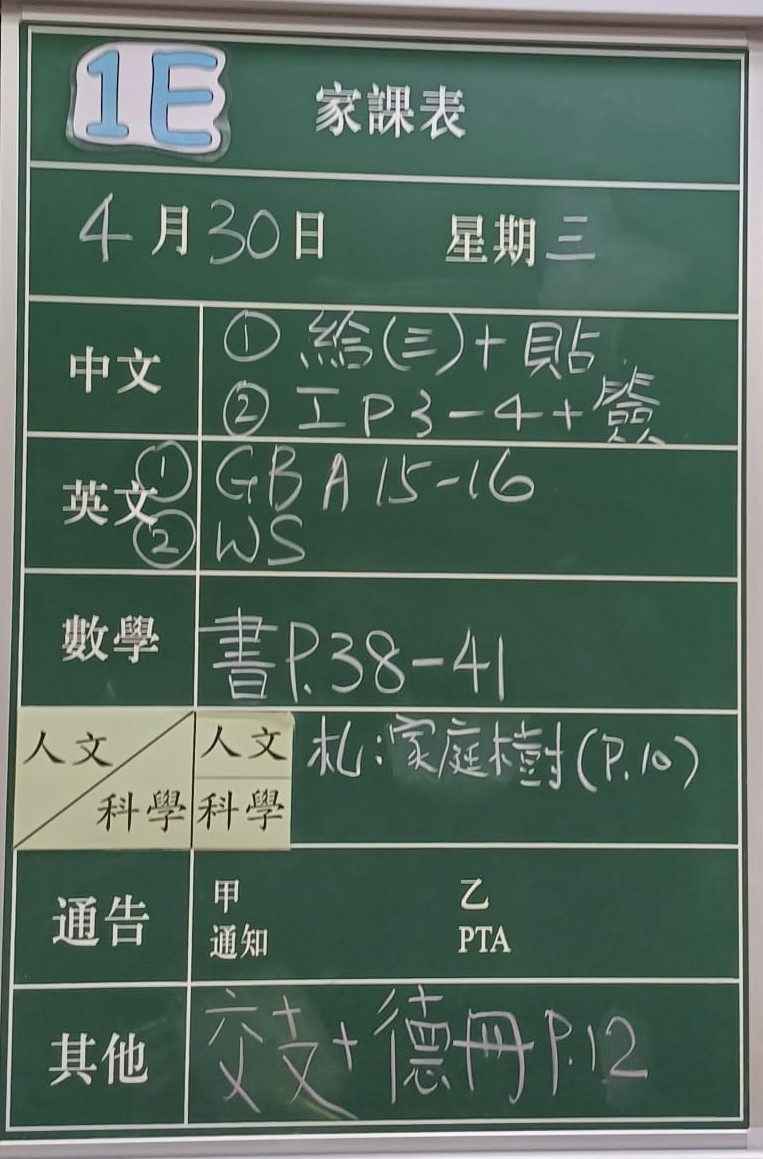 1E 家課表
4月30日 星期三
中文 ① 給(三)+貼
② 工P3-4+簽
英文 ① GB A 15-16
② WS
數學 書P.38-41
人文 科學 人文 札:家庭樹(P.10)
科學
通告 甲 乙
通知 PTA
其他 交支+德冊P.12